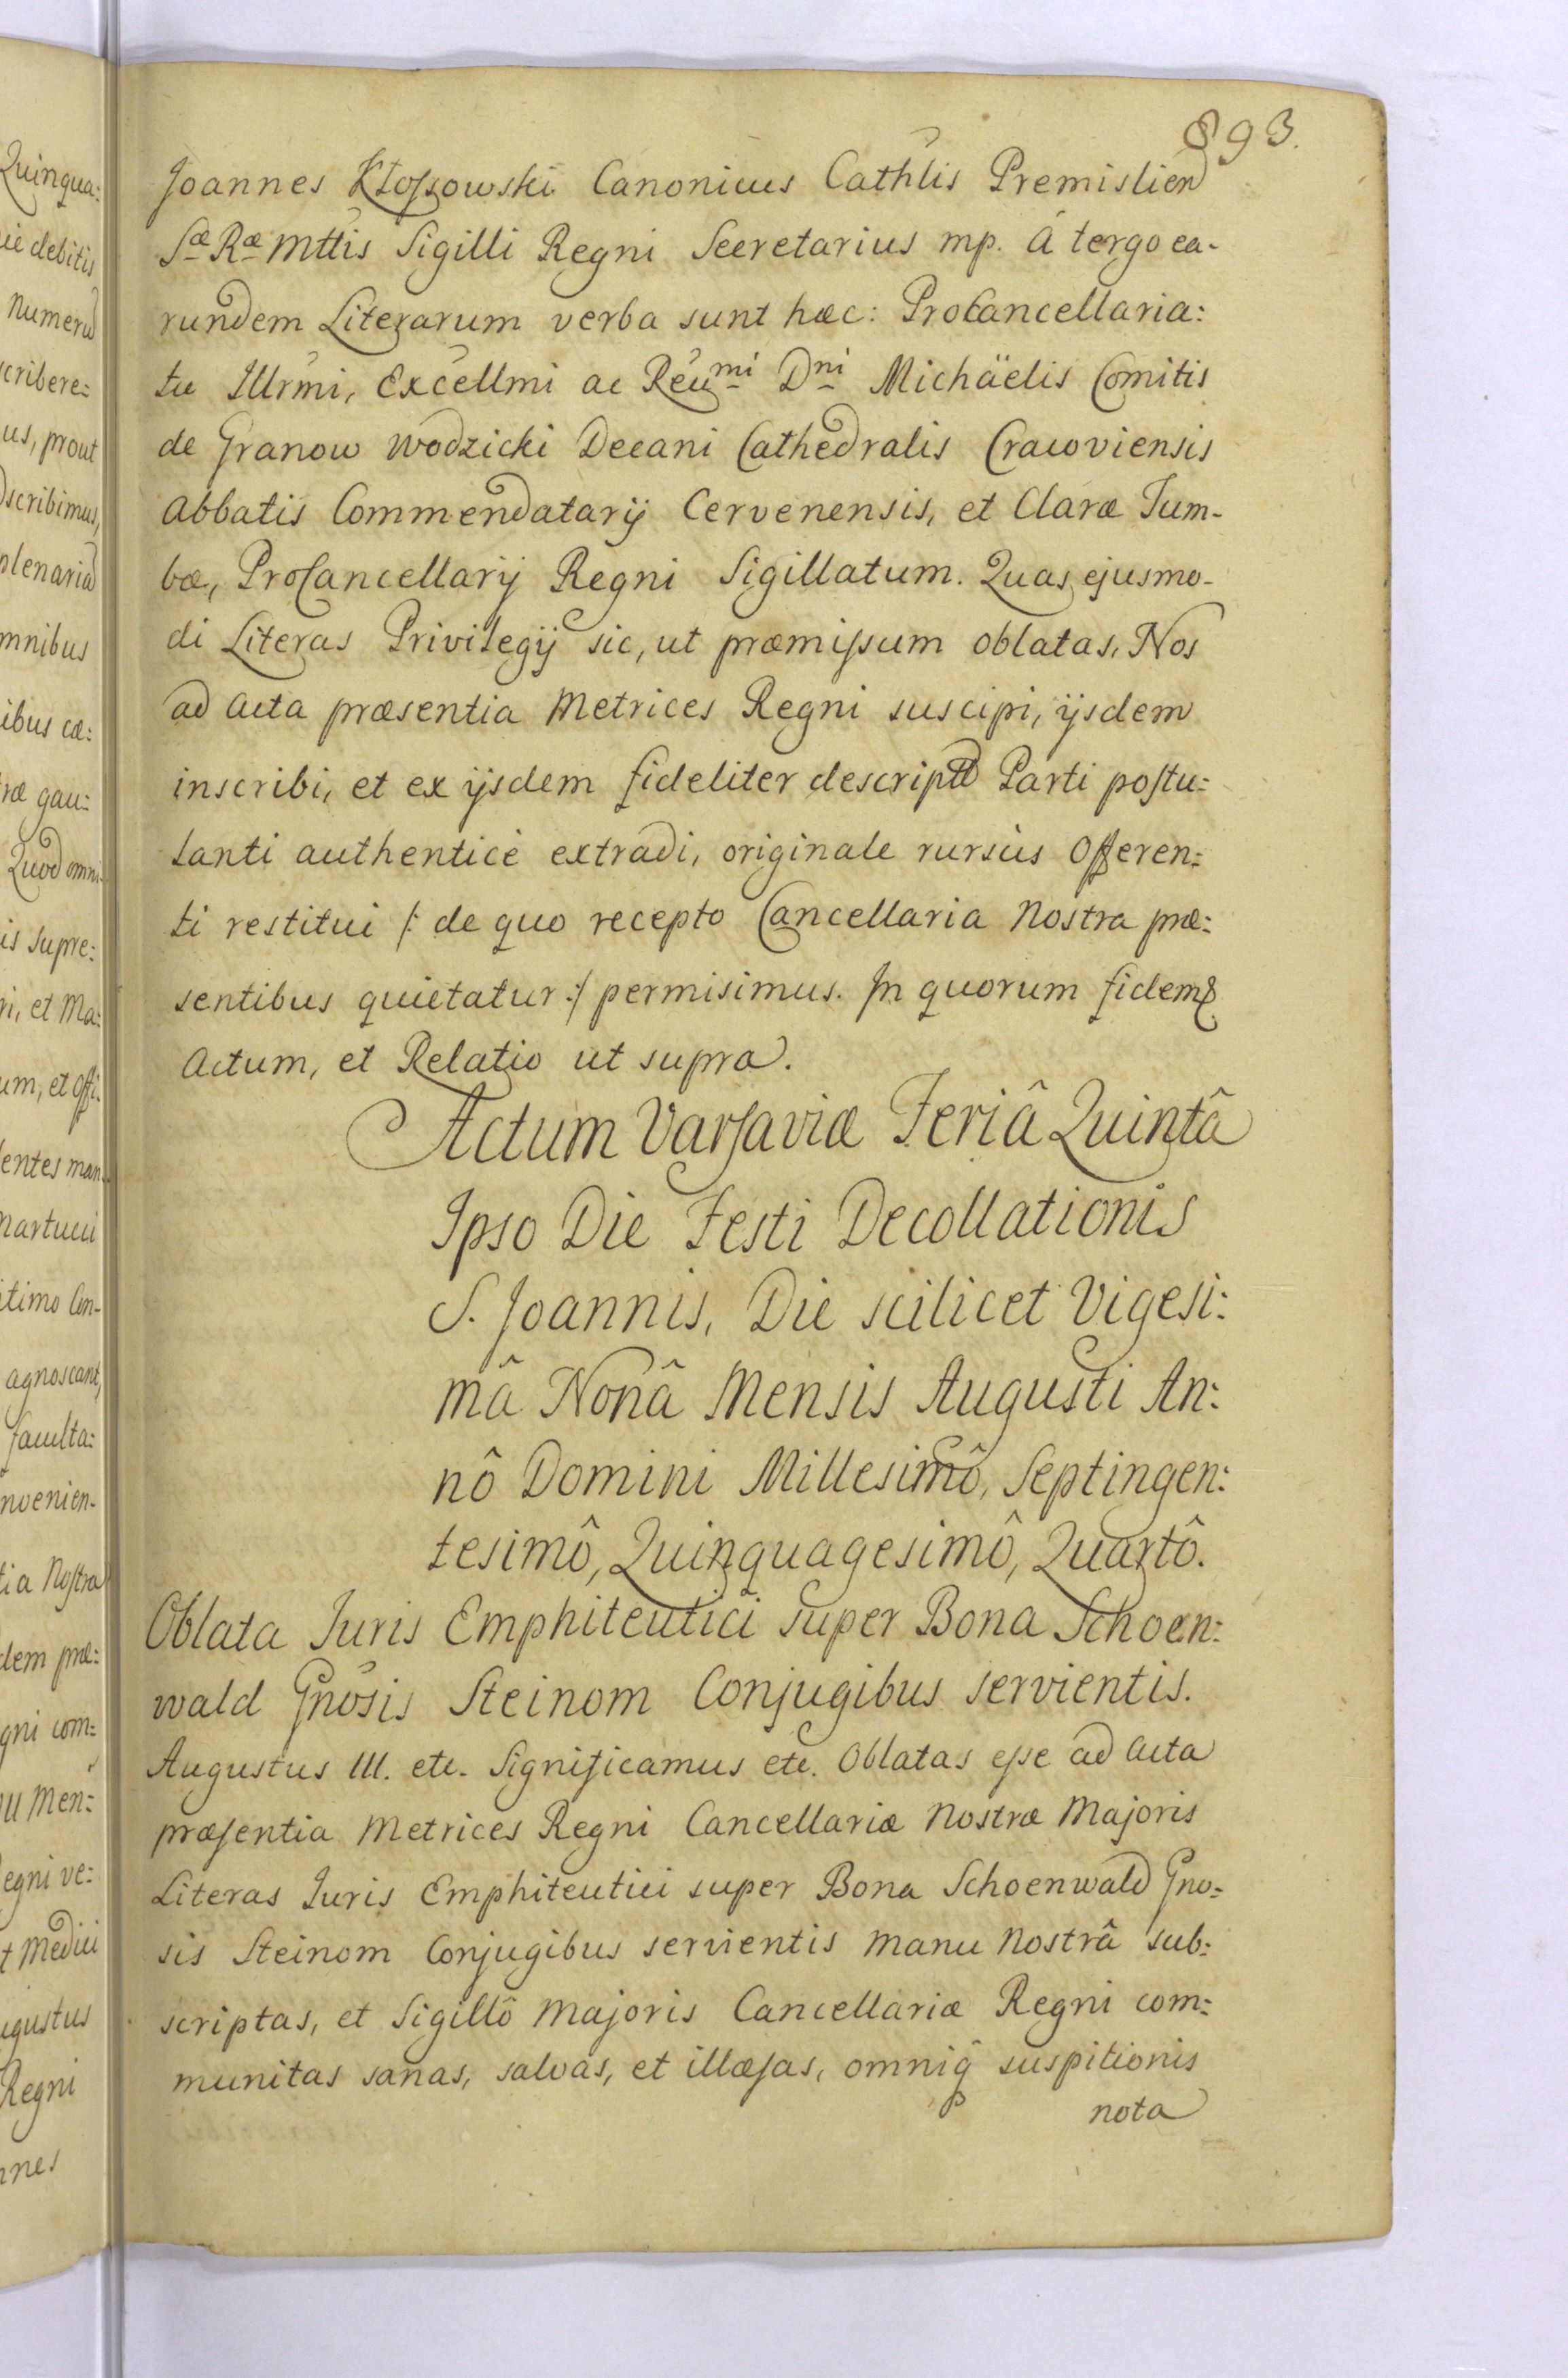 893.
Joannes Kłoſsowski Canonicus Cathlis Premislien
Sæ Ræ Mttis Sigilli Regni Secretarius mp. â tergo ea-
rundem Literarum verba sunt hæc: ProCancellaria:
tu Illrmi, Excellmi ac Reumi Dni Michäelis Comitis
de Granow Wodzicki Decani Cathedralis Cracoviensis
Abbatis Commendatarij Cervenensis, et Claræ Tum-
bæ, ProCancellarij Regni Sigillatum. Quas ejusmo-
di Literas Privilegij sic, ut præmiſsum oblatas, Nos
ad Acta præsentia Metrices Regni suscipi, ijsdem
inscribi, et ex ijsdem fideliter descripta Parti poſtu:
lanti authenticè extradi, originale rursùs Offeren:
ti restitui /: de quo recepto Cancellaria Nostra præ:
sentibus quietatur :/ permisimus. In quorum fidem
Actum, et Relatio ut supra.
Actum Varſaviæ Feriâ Quintâ
Ipso Die Festi Decollationis
S. Joannis, Die scilicet Vigesi:
mâ Nonâ Mensis Augusti An:
nô Domini Millesimô, Septingen:
tesimô, Quinquagesimô, Quartô.
Oblata Juris Emphiteutici super Bona Schoen:
wald Gnosis Steinom Conjugibus servientis.
Augustus III. etc. Significamus etc. Oblatas eſse ad Acta
præſentia Metrices Regni Cancellariæ Nostræ Majoris
Literas Juris Emphiteutici super Bona Schoenwald Gno:
sis Steinom Conjugibus servientis Manu Nostrâ sub:
scriptas, et Sigillô Majoris Cancellariæ Regni com:
munitas sanas, salvas, et illæſas, omniq suspitionis
nota